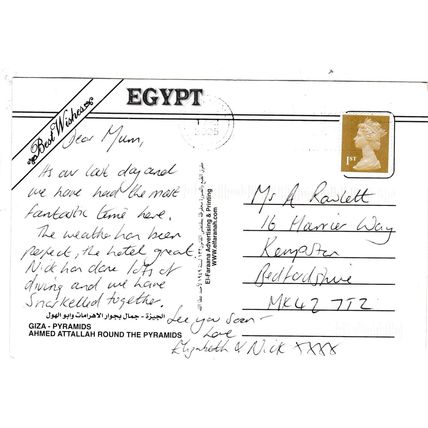 EGYPT
Best Wishes
Dear Mum,
Its our last day and
we have had the most
fantastic time here.
The weather has been
perfect, the hotel great.
Nick has done lots of
diving and we have
snorkelled together.
See you soon -
Love
Elizabeth & Nick xxxx
1ST
Ms A Rawlett
16 Harrier Way
Kempston
Bedfordshire
MK42 7TZ
El-Faraana Advertising & Printing
www.elfaraanah.com
الجيزة - جمال بجوار الاهرامات وابو الهول
GIZA - PYRAMIDS
AHMED ATTALLAH ROUND THE PYRAMIDS